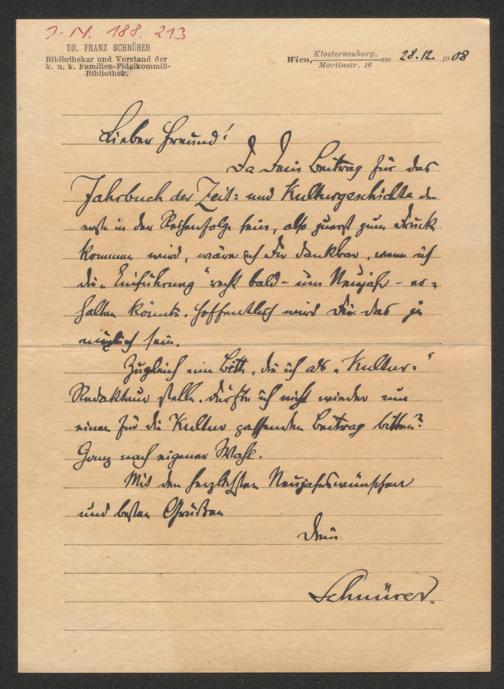 J. N. 188.213
DR. FRANZ SCHNÜRER
Bibliothekar und Vorstand der
k. u. k. Familien-Fideikommiß-
Bibliothek.
Wien, Klosterneuburg, Martinstr. 16 am 28.12. 1908
Lieber Freund!
Da Dein Beitrag für das
Jahrbuch der Zeit- und Kulturgeschichte der
erste in der Reihenfolge sein, also zuerst zum Druck
kommen wird, wäre ich Dir dankbar, wenn ich
die „Einführung" recht bald – um Neujahr – er-
halten könnte. Hoffentlich wird Dir das ja
möglich sein.
Zugleich eine Bitte, die ich als „Kultur-"
Redakteur stelle. Dürfte ich nicht wieder um
einen für die Kultur passenden Beitrag bitten?
Ganz nach eigener Wahl.
Mit den herzlichsten Neujahrswünschen
und besten Grüßen
Dein
Schnürer.